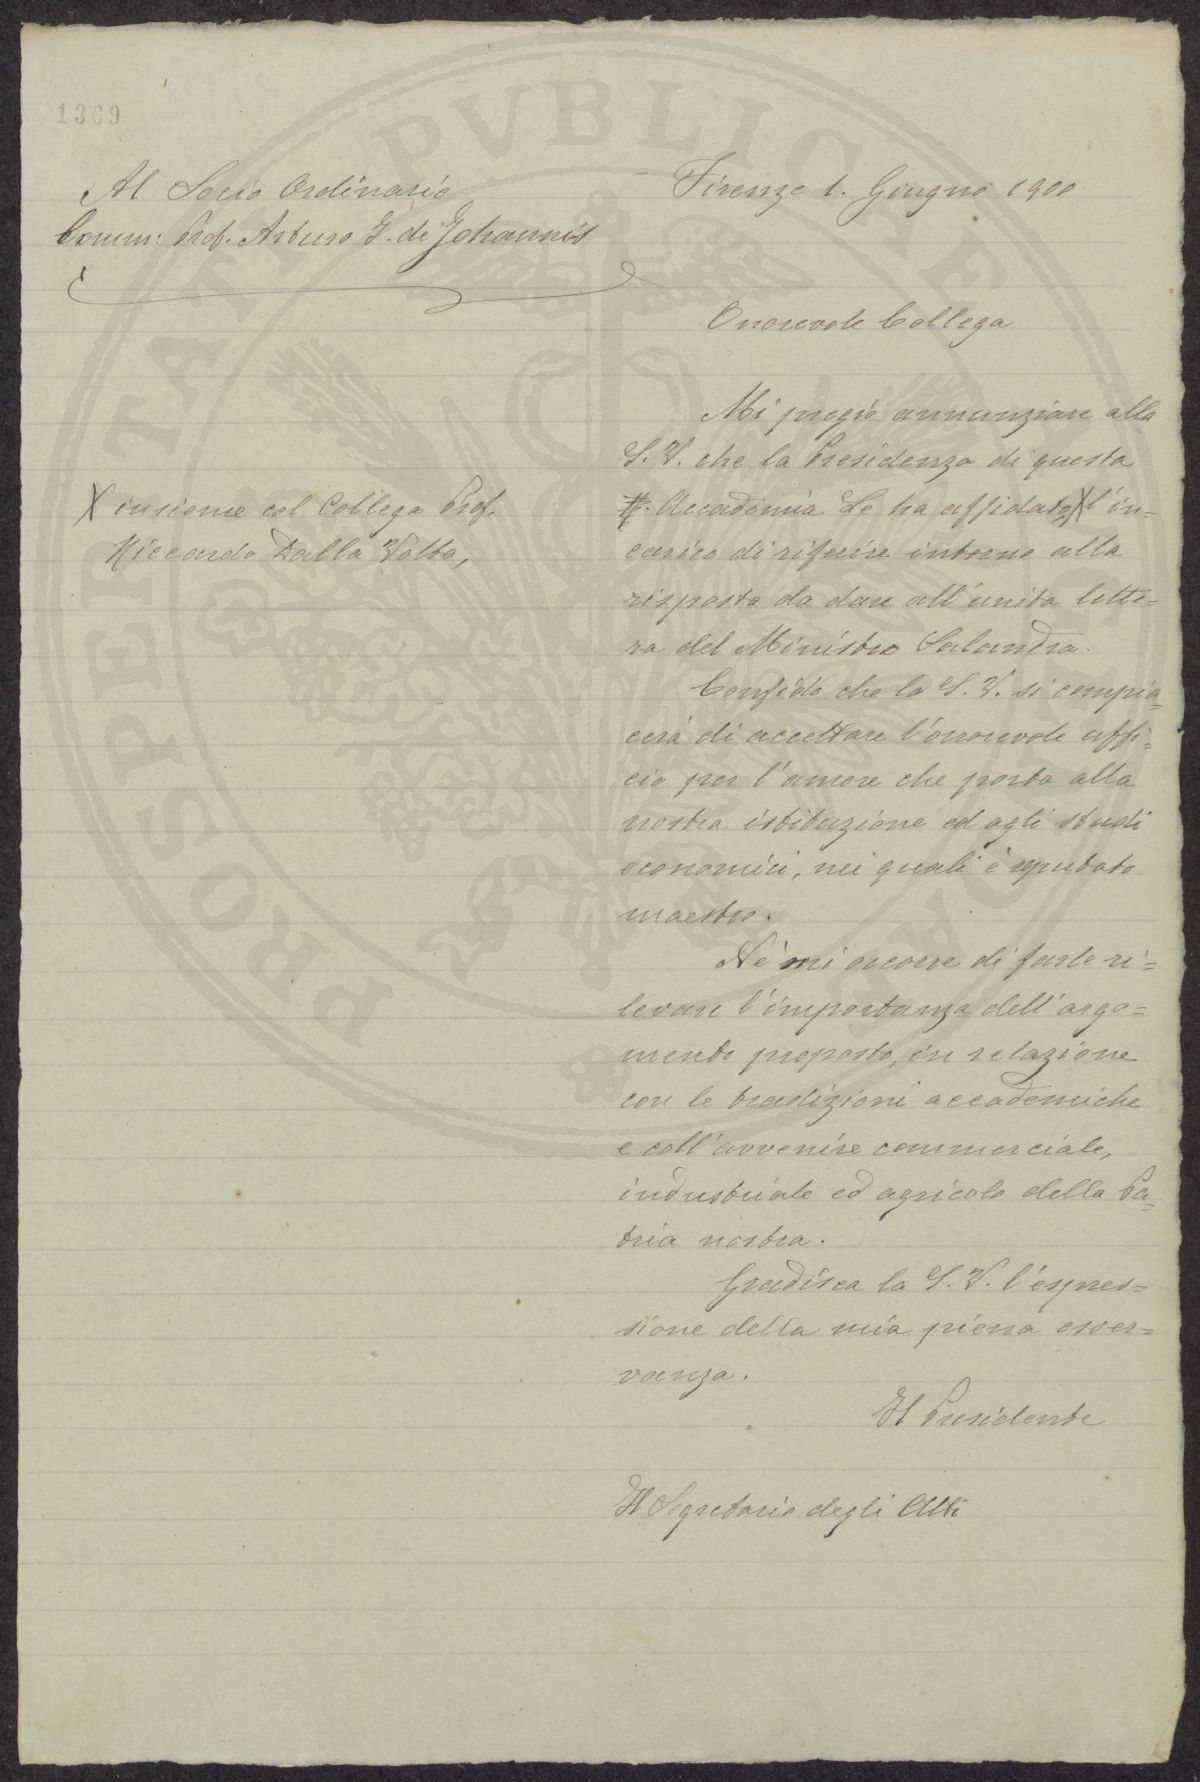 1369
Al Socio Ordinario
Comm: Prof. Arturo J. de Johannis
Firenze 1. Giugno 1900
Onorevole Collega
Mi pregio annunziare alla
S. V. che la Presidenza di questa
R. Accademia Le ha affidato, X l'in=
X insieme col Collega Prof.
Riccardo Dalla Volta,
carico di riferire intorno alla
risposta da dare all'unita lette=
ra del Ministro Salandra.
Confido che la S. V. si compia=
cerà di accettare l'onorevole uffi=
cio per l'amore che porta alla
nostra istituzione ed agli studi
economici, nei quali è reputato
maestro.
Nè mi occorre di farle ri=
levare l'importanza dell'argo=
mento proposto, in relazione
con le tradizioni accademiche
e coll'avvenire commerciale,
industriale ed agricolo della Pa=
tria nostra.
Gradisca la S. V. l'espres=
sione della mia piena osser=
vanza.
Il Presidente
Il Segretario degli Atti
PROSPERITATI PVBLICAE